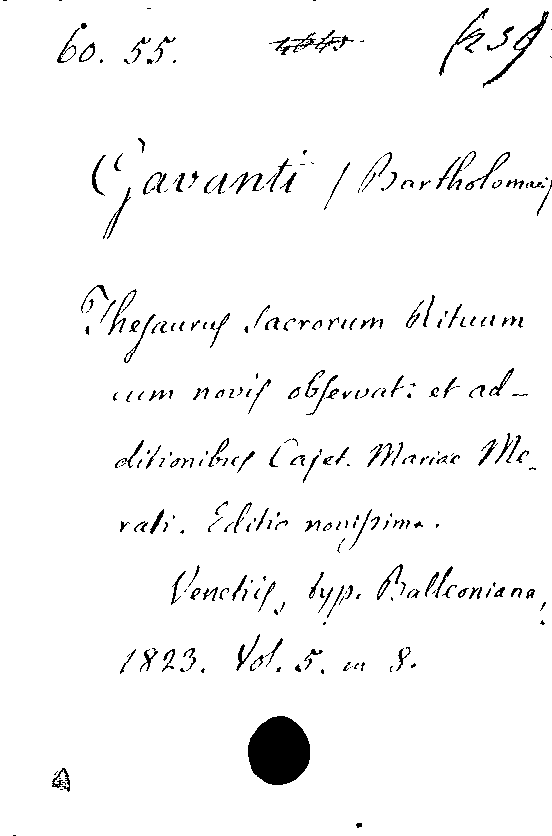 60. 55.
Gavanti / Bartholomaei
Thesaurus sacrorum Rituum
cum novis observat: et ad-
ditionibus Cajet. Mariae Me-
rati. Editio novissima.
Venetiis, typ. Balleoniana,
1823. Vol. 5. in 8.